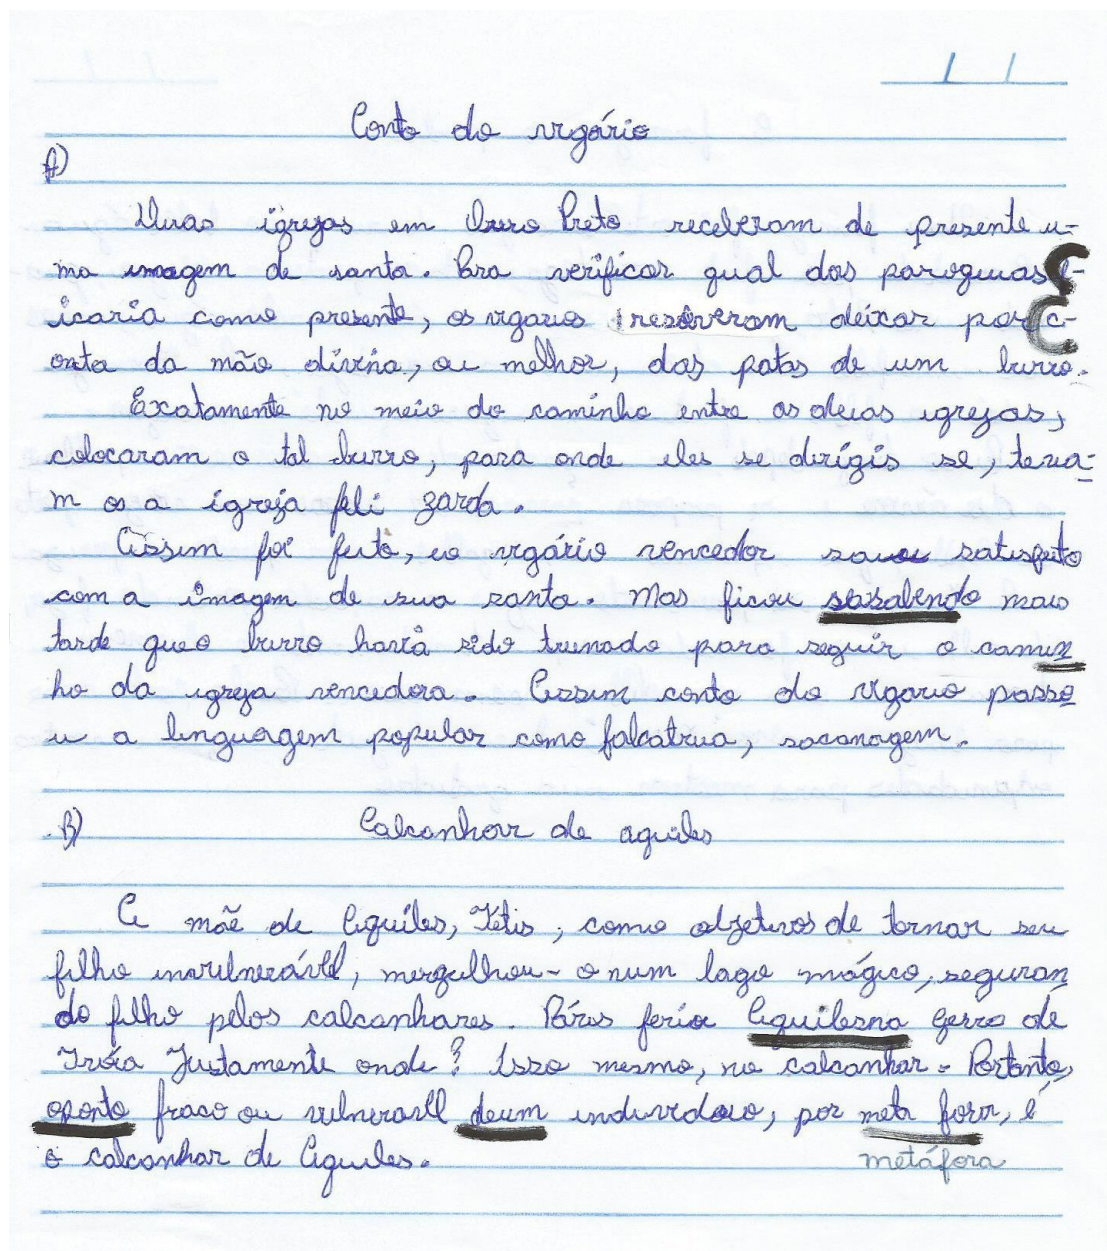 Conto do vigário
A)
Duas igrejas em Ouro Preto receberam de presente u-
ma imagem de santa. Para verificar qual das paroquias f-
icaria como presente, os vigarios resoveram deixar por c-
onta da mão divina, ou melhor, das patas de um burro.
Exatamente no meio do caminho entre as duas igrejas,
colocaram o tal burro, para onde eles se dirigis se, teria-
m os a igreja feli zarda.
Assim foi feito, eo vigário vencedor saiu satisfeito
com a imagem de sua santa. Mas ficou sasabendo mais
tarde queo burro havia sido treinado para seguir o camin
ho da igreja vencedora. Assim conto do vigario passo
u a linguagem popular como falcatrua, sacanagem.
B) Calcanhar de aquiles
A mãe de Aquiles, Tétis, como objetivos de tornar seu
filho invulnerável, mergulhou-o num lago mágico, seguran
do filho pelos calcanhares. Páris feria Aquilesna gerra de
Tróia Justamente onde? Isso mesmo, no calcanhar. Portanto,
oponto fraco ou vulneravel deum individuo, por meta fora, é
o calcanhar de Aquiles.
metáfora